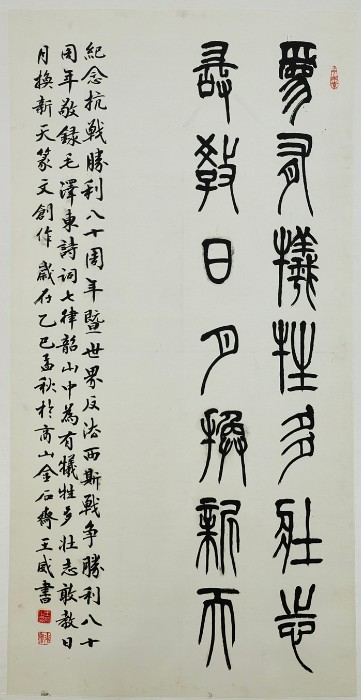 為有犧牲多壯志
敢教日月換新天
紀念抗戰勝利八十周年暨世界反法西斯戰争勝利八十
周年敬錄毛澤東詩詞七律韶山中為有犧牲多壯志敢教日
月換新天篆文創作歲在乙巳孟秋於高山金石齋王威書